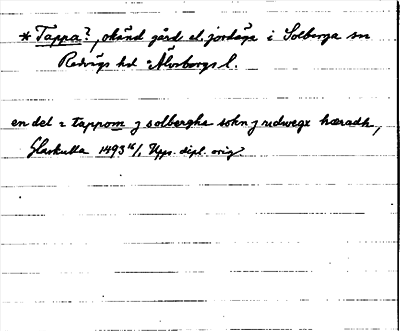 * Tappa?, okänd gård el. jordäga i Solberga sn
Redvägs hd Älvsborgs l.
en del i tappom j solbergha sokn j redwegx hæradh,
Glaskulla 1493 16/1 Upps. dipl. orig.